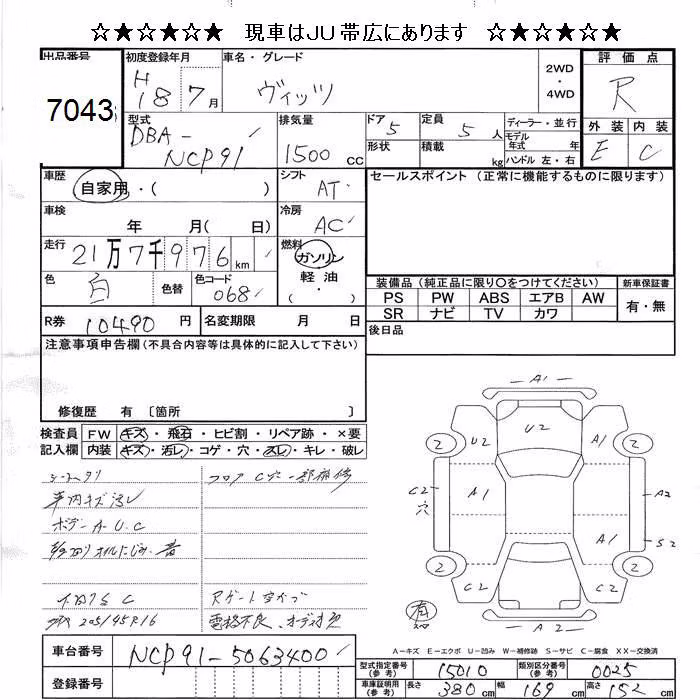 ☆★☆★☆★ 現車はJU帯広にあります ☆★☆★☆★
出品番号 初度登録年月 車名・グレード 2WD ・ 4WD 評価点
7043 H18 7月 ヴィッツ R
型式 DBA- NCP91 排気量 1500 cc ドア 5 定員 5 人 ディーラー・並行
形状 積載 kg モデル年式 年
ハンドル 左・右
外装 内装
E C
車歴 自家用・( ) シフト AT セールスポイント (正常に機能するものに限ります)
車検 年 月( 日) 冷房 AC
走行 21万7千976 km 燃料 ガソリン
軽油
( ・ )
色 白 色替 色コード 068
装備品 (純正品に限り〇をつけてください) 新車保証書
PS PW ABS エアB AW 有・無
SR ナビ TV カワ
R券 10490 円 名変期限 月 日 後日品
注意事項申告欄(不具合内容等は具体的に記入して下さい)
修復歴 有 〔箇所 〕
検査員 FW キズ・飛石・ヒビ割・リペア跡・×要
記入欄 内装 キズ・汚レ・コゲ・穴・スレ・キレ・破レ
フロア C穴一部補修
車内キズ汚レ
ボデーA.U.C
下回り C
205/45R16
電格不良
A1
2 U2 U2 A1 2
C2 穴 A1 A2
A1 S2
2 C2 C2 2
有
A2
A-キズ E-エクボ U-凹み W-補修跡 S-サビ C-腐食 XX-交換済
車台番号 NCP91-5063400
登録番号
型式指定番号 (参考) 15010 類別区分番号 (参考) 0025
車庫証明用 (参考) 長さ 380 cm 幅 169 cm 高さ 152 cm